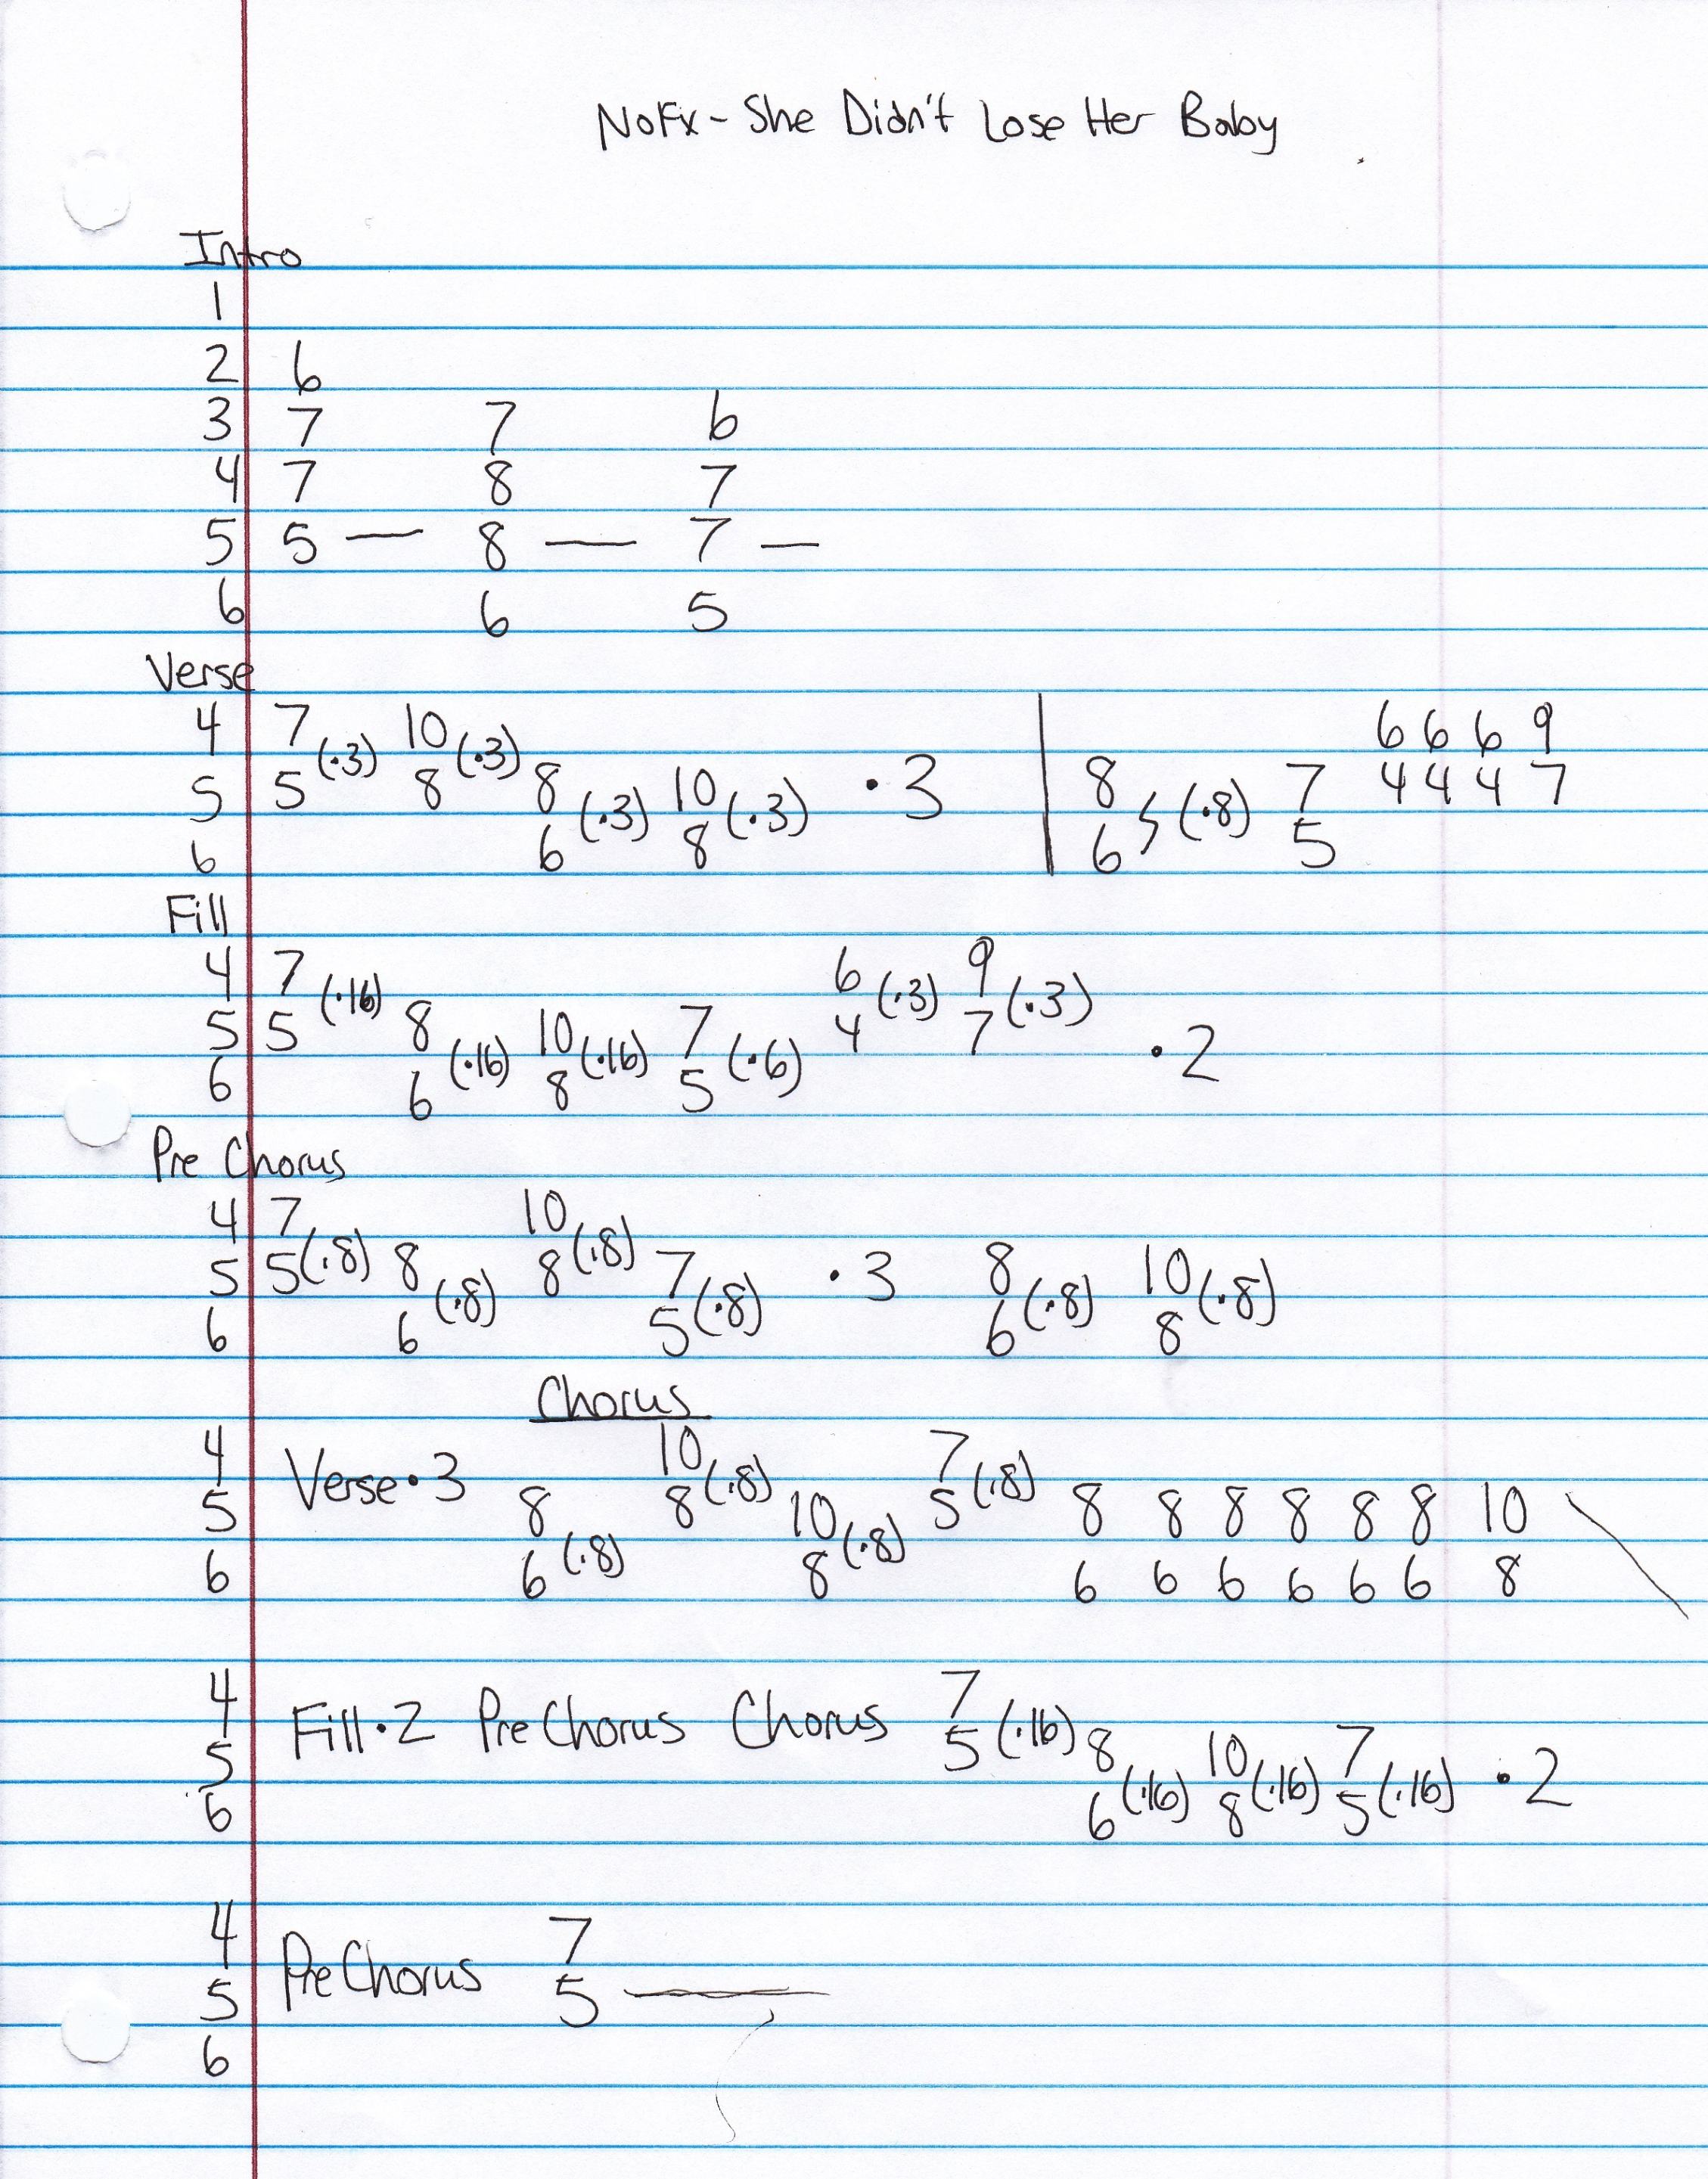 NoFx - She Didn't Lose Her Baby
Intro
1
2 6
3 7 7 6
4 7 8 7
5 5 — 8 — 7 —
6 6 5
Verse
4 7 (·3) 10 (·3) 6 6 6 9
5 5 8 8 (·3) 10 (·3) ·3 8 (·8) 7 4 4 4 7
6 6 8 6 5
Fill
4 7 (·16) 6 (·3) 9 (·3)
5 5 8 (·16) 10 (·16) 7 (·6) 4 7 ·2
6 6 8 5
Pre Chorus
4 7 10
5 5 (·8) 8 (·8) 8 (·8) 7 (·8) ·3 8 (·8) 10 (·8)
6 6 5 6 8
Chorus
4 Verse·3 10 (·8) 7 (·8)
5 8 8 10 (·8) 5 8 8 8 8 8 8 10
6 6 (·8) 8 6 6 6 6 6 6 8
4 Fill·2 PreChorus Chorus 7
5 5 (·16) 8 10 7 ·2
6 6 (·16) 8 (·16) 5 (·16)
4 7
5 PreChorus 5 —
6